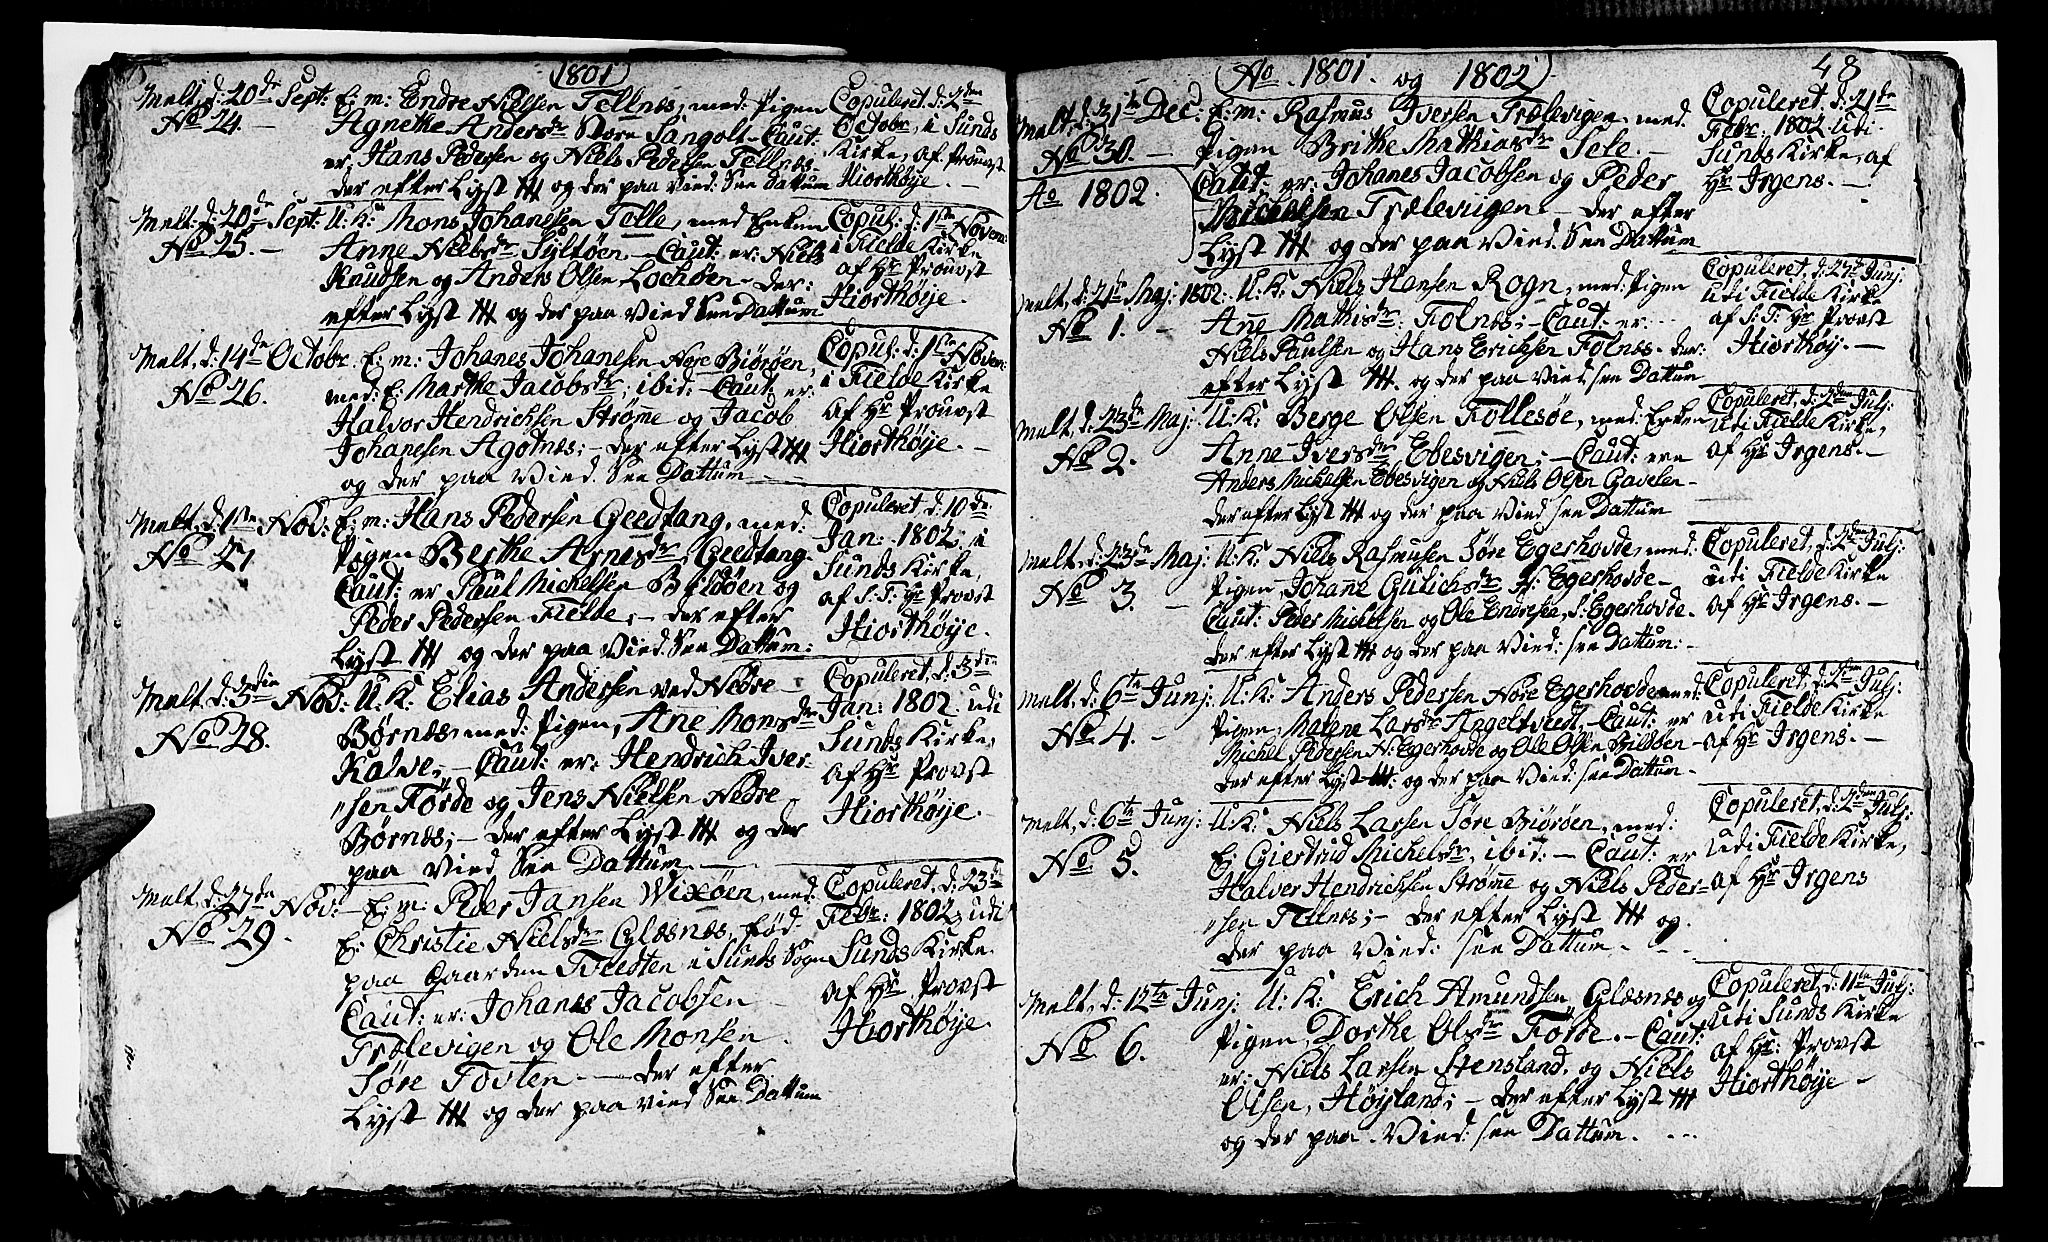 1801
Melt, d: 20de Sept: E: m: Endre Nielsen Tellnæs, med: Pigen
No 24. — Agnethe Andersdr Store Sangolt – Caut:
er, Hans Pedersen og Niels Pedersen Tellnæs
der efter Lyst ### og der paa Vied: See Dattum
Copuleret, d: 2den
Octobr, i Sunds
Kirke, af Prouvst
Hiorthøye. —
Melt: d: 20de Sept: U: K: Mons Johanesen Telle, med Enken
No 25. — Anne Nielsdr Syltøen, – Caut: er: Niels
Knudsen og Anders Olsen Lochøen – der:
efter Lyst ### og der paa Vied See Dattum
Copul: d: 1ste Novem:
i Fielde Kirke
af Hr Prouvst
Hiorthøije.
Melt, d: 14de Octobr. E: m: Johanes Johanesen Nore Biørøen,
No 26. med: E: Marthe Jacobsdr, ibid: – Caut: er:
Halvor Hendrichsen Strøme og Jacob
Johanesen Agotnæs; – der efter Lyst ###
og der paa Vied. See Dattum —
Copul: d: 1ste Novem:
i Fielde Kirke
af Hr Prouvst
Hiorthøije. —
Melt, d: 1ste Nov: E: m: Hans Pedersen Geedtang, med:
No 27 Pigen Berthe Arnesdr Geedtang
Caut: er Paul Mickelsen Bildøen og
Peder Pedersen Fielde; – der efter
Lyst ### og der paa Vied. See Dattum:
Copuleret d: 10de
Jan: 1802. i
Sunds Kirke,
af S: T: Hr Provst
Hiorthøije.
Melt, d: 3die Nov: U: K: Elias Andersen ved Nedre –
No 28. Børnæs, med: Pigen, Ane Monsdr
Kalve; – Caut: er: Hendrich Iver-
"sen Førde og Jens Nielsen Nedre
Børnæs; – der efter Lyst ### og der
paa Vied. See Dattum —
Copuleret, d: 3die
Jan: 1802. udi
Sunds Kirke,
af Hr Provst
Hiorthøije.
Melt, d: 27de Nov: – E: m: Peder Jansen Wixøen, med
No 29. E: Christie Nielsdr Glæsnæs, fød:
paa Gaarden Tvedten i Sunds Sogn
Caut: er: Johanes Jacobsen —
Trælevigen og Ole Monsen —
Søre Toften. – der efter
Lyst ### og der paa vied See Dattum
Copuleret, d: 23de
Febr: 1802, udi
Sunds Kirke.
af Hr Provst
Hiorthøije.
Ao 1801. og 1802.
48
Melt, d: 31te Dec: E: m: Rasmus Iversen Trælevigen, med.
No 30. — Pigen Brithe Mathiasdr Sele. –
Ao 1802. Caut: er: Johanes Jacobsen og Peder
Michelsen Trælevigen, der efter
Lyst ### og der paa Vied. See Dattum
Copuleret, d: 21de
Febr: 1802 udi
Sunds Kirke, af
Hr Irgens. —
Melt, d: 21de Maj: 1802. U: K: Niels Hansen Rogn, med: Pigen
No 1. — Ane Mathisdr: Folnæs; – Caut: er:
Niels Paulsen og Hans Erichsen Folnæs. der:
efter Lyst ###. og der paa Vied, see Dattum
Copuleret, d: 27de Junj:
udi Fielde Kirke
af S: T: Hr Provst
Hiorthøij. —
Melt, d: 23de Maj: U: K: Berge Olsen Follesøe, med: Enken
No 2. Anne Iversdr Ebesvigen; – Caut: ere
Anders Mickelsen Ebesvigen og Niels Olsen Gavelen –
der efter Lyst ### og der paa Vied see Dattum
Copuleret, d: 2den Julj:
udi Fielde Kirke,
af Hr Irgens. —
Melt, d: 23de Maj: U: K: Niels Rasmusen Søre Egerhovde, med:
No 3. — Pigen, Johane Gulichsdr N: Egerhovde –
Caut: Peder Michelsen og Ole Endresen, S: Egerhovde.
der efter Lyst ### og der paa Vied: see Dattum: –
Copuleret, d: 2den Julj:
udi Fielde Kirke
af Hr Irgens. —
Melt, d: 6te Junj: U: K: Anders Pedersen Nore Egerhovde med:
No 4. — Pigen, Malene Larsdr Angeltvedt, – Caut: er
Michel Pedersen N: Egerhovde og Ole Olsen Bildøen –
der efter Lyst ###: og der paa Vied: see Dattum –
Copuleret, d: 2den Julj:
udi Fielde Kirke
af Hr Irgens. —
Melt, d: 6te Junj: U: K: Niels Larsen Søre Biørøen, med:
No 5. E: Giertrud Michelsdr, ibid: – Caut: er
Halver Hendrichsen Strøme og Niels Peder-
"sen Tellnæs; – der efter Lyst ### og.
der paa Vied: see Dattum –
Copuleret, d: 2den Julj:
udi Fielde Kirke,
af Hr Irgens
Melt, d: 12te Junj: U: K: Erich Amundsen, Glæsnæs og
No 6. Pigen, Dorthe Olsdr Førde. – Caut:
er: Niels Larsen Stensland, og Niels
Olsen, Høyland; – der efter Lyst ###
og der paa – Vied: see Dattum. ...
Copuleret, d: 11te Julj:
udi Sunds Kirke
af Hr: Provst
Hiorthøije —